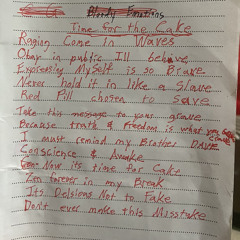 Bloody Emotions
Time for the Cake
Raging Come in Waves
Obay in public Ill behave
Expressing Myself is so Brave
Never hold it in like a slave
Red Pill chosen to save
Take this message to your grave
Because truth & Freedom is what you
I must remind my Brother DAVE
Conscience & Awake
Now its time for Cake
Im forever in my Break
Its Delsious Not to Fake
Don't ever make this Misstake